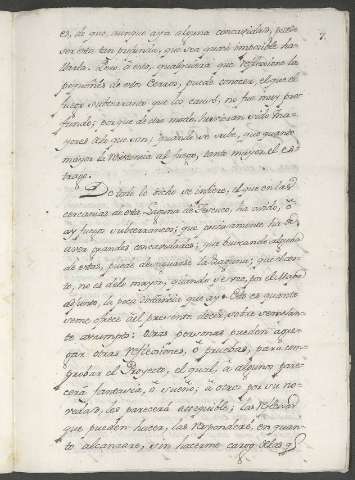 7.
es, de que, aunque aya alguna concavidad, puede
ser esta tan profunda, que sea quasi imposible ha-
llarla. Pero à esto, qualquiera que reflexione la
pequeñez de estos Cerros, puede conocer, el que el
fuego subterraneo que los causò, no fue muy pro-
fundo; porque de otro modo, huvieran sido ma-
yores de lo que son; quando se sabe, que quanto
mayor la resistencia al fuego, tanto mayor el es-
trago.
De todo lo dicho se infiere, el que en las
cercanias de esta Laguna de Tescuco, ha avido, ò
ay fuego subterraneo; que continuamente ha de
aver grandes concavidades; que buscando alguna
de estas, puede desaguarse la Laguna; que el cos-
to, no es de lo mayor, quando se vee, por el Mapa
adjunto, la poca distancia que ay. Esto es quanto
se me ofrece al presente decir, sobre semejan-
te assumpto; otras personas pueden agre-
gar otras reflexiones, ò pruebas, para com-
probar el Proyecto, el qual, à algunos pare-
cerà fantasia, ò sueño; à otros por su no-
vedad, les parecerà assequible; las reflexio-
que pueden hacer, las responderè, en quan-
to alcanzare, sin hacerme cargo de las q